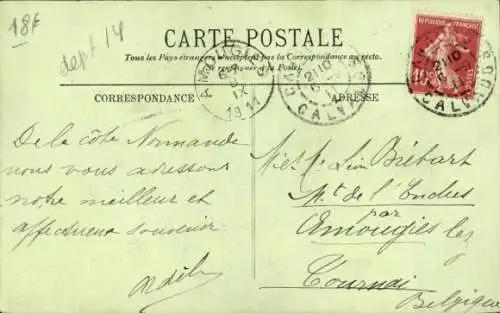 18F
dept 14
CARTE POSTALE
Tous les Pays étrangers n'acceptent pas la Correspondance au recto.
se renseigner à la Poste.
CORRESPONDANCE
ADRESSE
AMOUGIES
IX
1911
21 10
CALVADOS
REPUBLIQUE FRANÇAISE
10c
21 10
CALVADOS
De la côte Normande
nous vous adressons
notre meilleur et
affectueux souvenir
Adèle
Léon Brébart
Mt de l'Enclus
par
Amougies lez
Tournai
Belgique